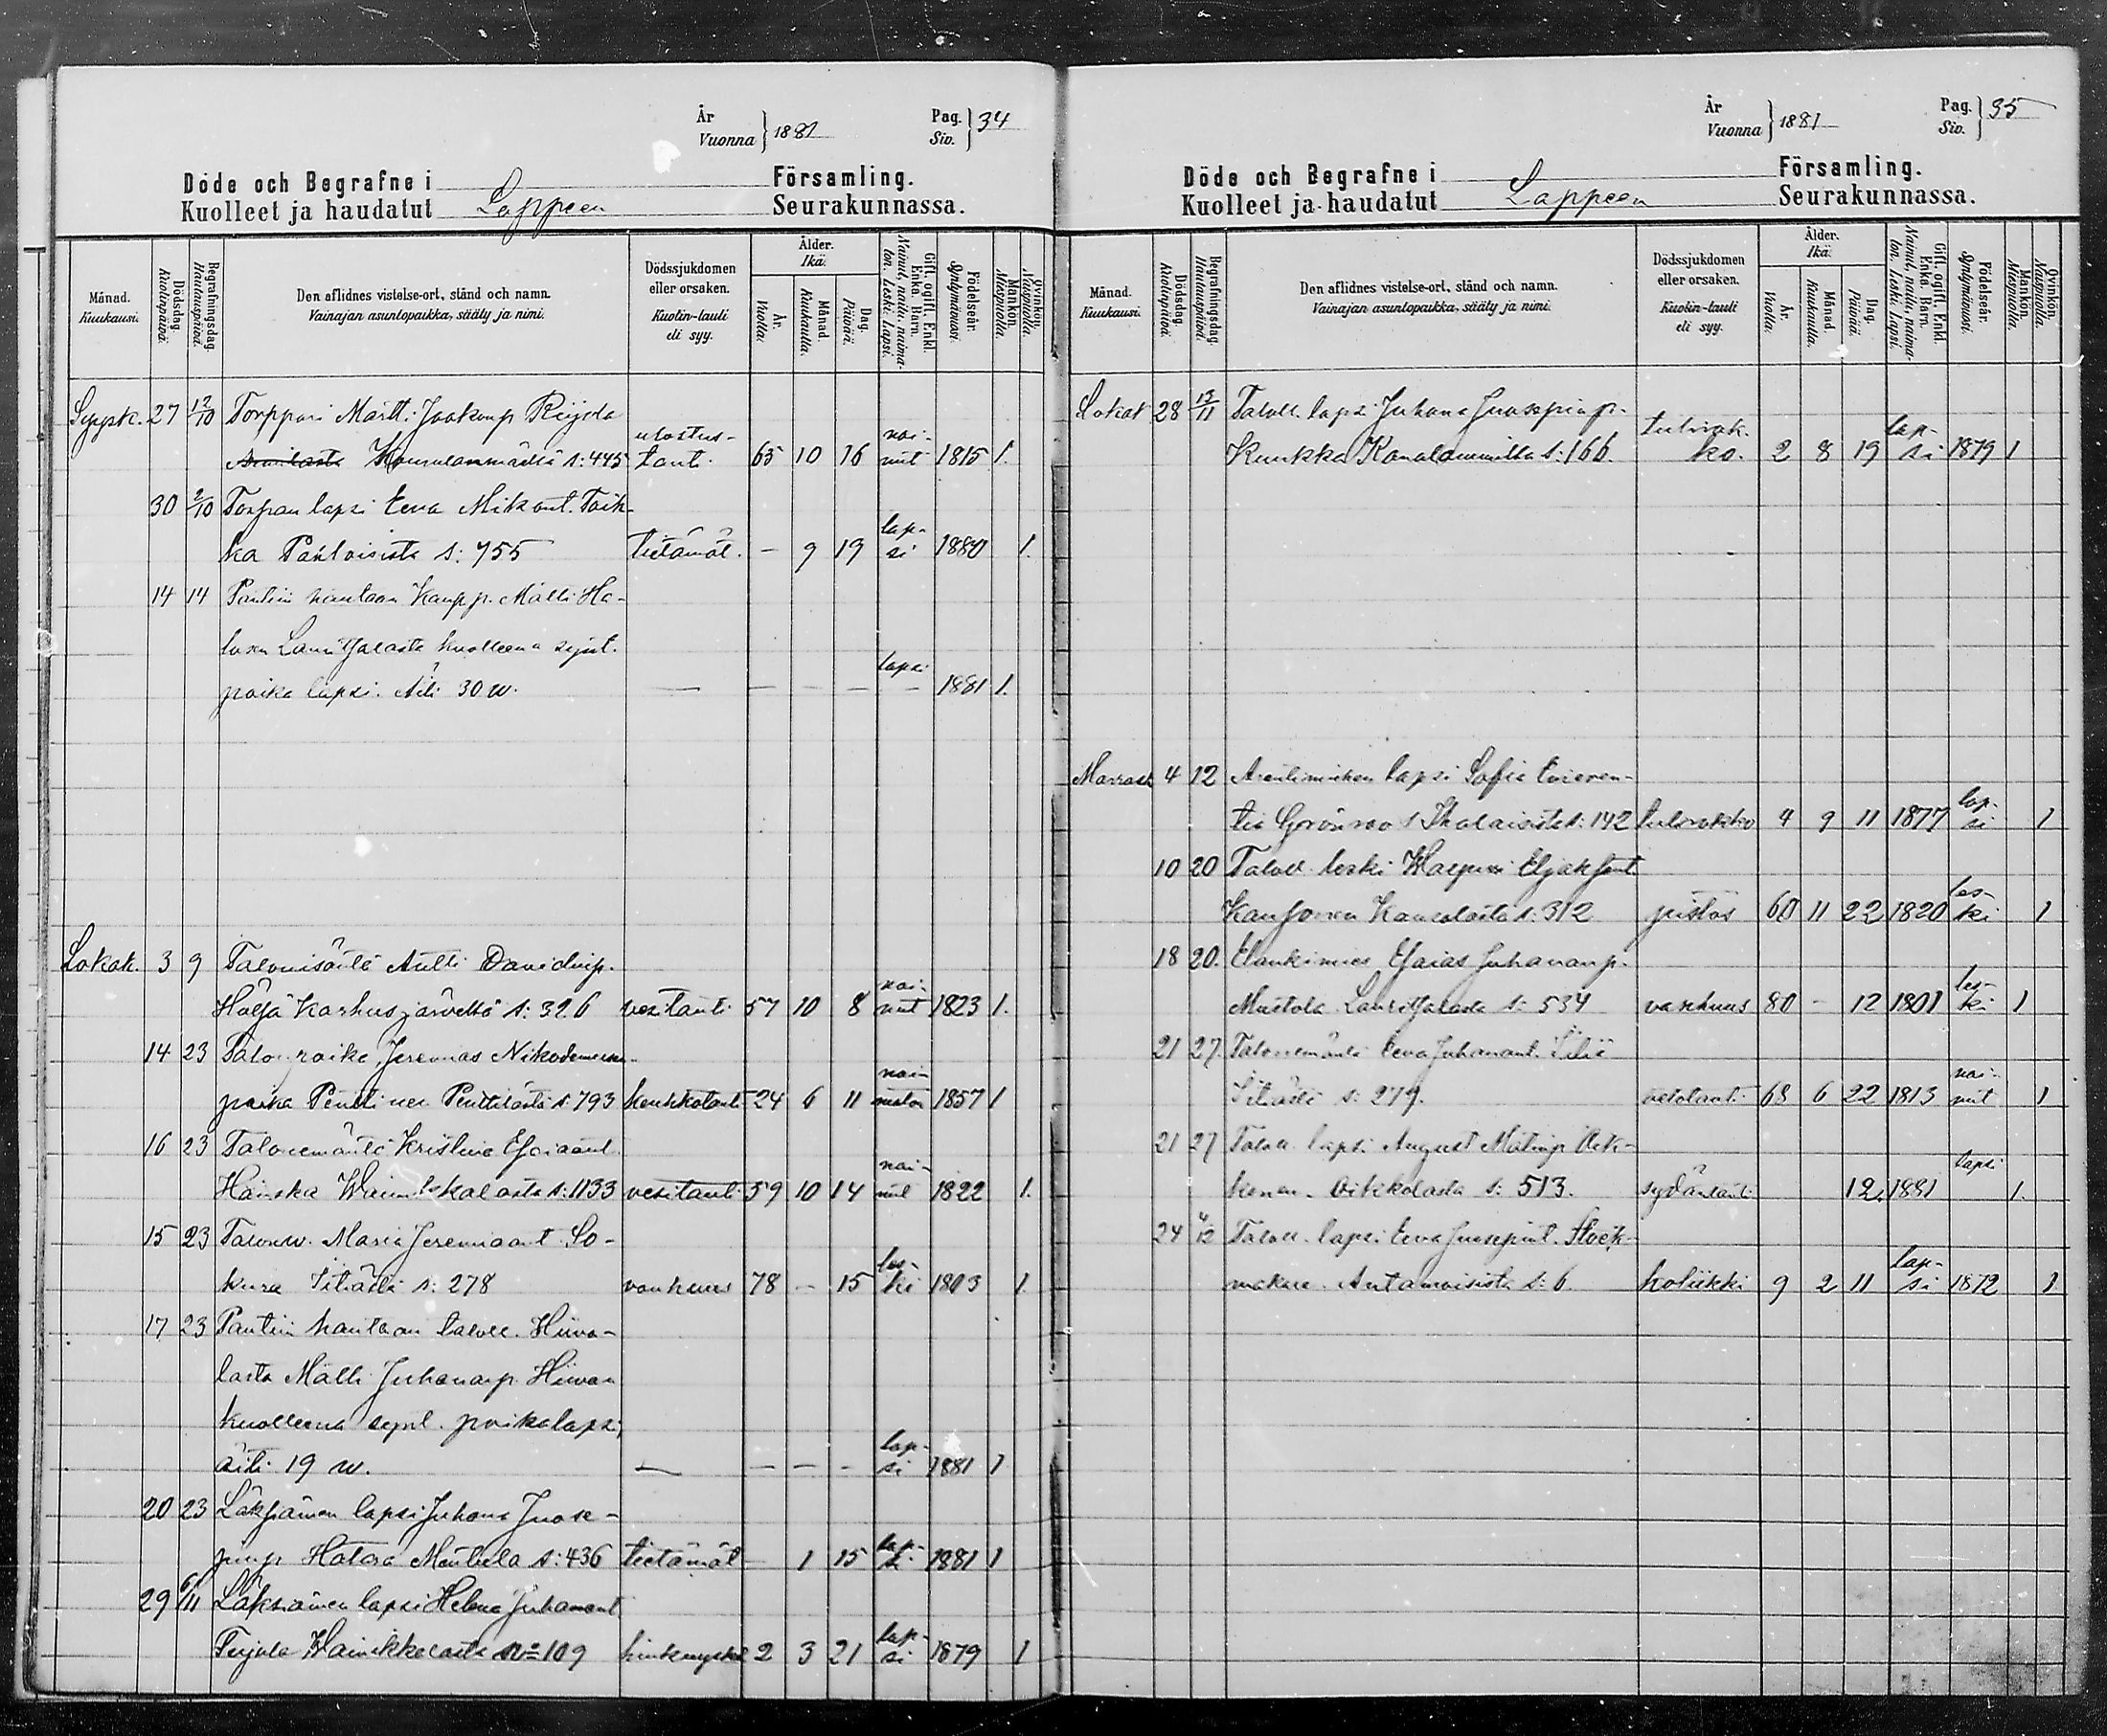 År
Vuonna } 1881
Pag.
Siv. } 34
Döde och Begrafne i Församling.
Kuolleet ja haudatut Lappeen Seurakunnassa.
Månad. Kuukausi.
Dödsdag. Kuolinpäivä.
Begrafningsdag. Hautauspäivä.
Den aflidnes vistelse-ort, stånd och namn.
Vainajan asuntopaikka, sääty ja nimi.
Dödssjukdomen eller orsaken.
Kuolin-tauti eli syy.
Ålder. Ikä.
År. Vuotta.
Månad. Kuukautta.
Dag. Päivää.
Gift, ogift, Enkl. Enka, Barn.
Nainut, naitu, naimaton, Leski, Lapsi.
Födelseår. Syntymävuosi.
Mankön. Miespuolia.
Qvinkön. Naispuolia.
Syysk. 27 12/10 Torppari Matti Jaakonp.
ulostus- nai-
s: 445 tauti 65 10 16 nut 1815 1.
30 2/10 Torpan lapsi Eeva Mikont. Toik-
lap-
ka s: 755 tietämät. - 9 19 si 1880 1.
14 14 Pantiin hautaan Kaupp. Matti Ha-
losen Lauritsalasta kuolleena synt.
lapsi
poika lapsi. Äiti 30 w. — — — — — 1881 1.
Lokak. 3 9 Talonisäntä Antti Davidinp.
nai-
Hölsä Karhusjärveltä s: 326 vesitauti 57 10 8 nut 1823 1.
14 23 Talon poika Jeremias Nikodemuksen-
nai-
poika Penttinen Penttilästä s: 793 keuhkotauti 24 6 11 maton 1857 1
16 23 Talonemäntä Kristina Esaiaant.
nai-
s: 1133 vesitauti 59 10 14 nut 1822 1.
15 23 Talonw. Maria Jeremiaant. So-
les-
kura s: 278 vanhuus 78 - 15 ki 1803 1.
17 23 Pantiin hautaan taloll. Hiiva-
lasta Matti Juhananp. Hiivan
kuolleena synt. poikalapsi,
lap-
äiti 19 w. — — — — si 1881 1
20 23 Läksiäimen lapsi Juhana Juose-
lap-
pinp. s: 436 tietämät 1 15 si 1881 1
29 6/11 Läksiäimen lapsi Helena Juhanant.
lap-
Wainikkalasta № 109 hinkuyskä 2 3 21 si 1879 1
År
Vuonna } 1881
Pag.
Siv. } 35
Döde och Begrafne i Församling.
Kuolleet ja haudatut Lappeen Seurakunnassa.
Månad. Kuukausi.
Dödsdag. Kuolinpäivä.
Begrafningsdag. Hautauspäivä.
Den aflidnes vistelse-ort, stånd och namn.
Vainajan asuntopaikka, sääty ja nimi.
Dödssjukdomen eller orsaken.
Kuolin-tauti eli syy.
Ålder. Ikä.
År. Vuotta.
Månad. Kuukautta.
Dag. Päivää.
Gift, ogift, Enkl. Enka, Barn.
Nainut, naitu, naimaton, Leski, Lapsi.
Födelseår. Syntymävuosi.
Mankön. Miespuolia.
Qvinkön. Naispuolia.
Lokak 28 13/11 Taloll. lapsi Juhana Juosepinp.
tulirok- lap-
s: 166. ko. 2 8 19 si 1879 1
Marrask. 4 12 lapsi Sofia
lap-
s: 142 tulirokko 4 9 11 1877 si 1
10 20 Taloll. leski
les-
s: 312 pistos 60 11 22 1820 ki 1
18 20. Esaias Juhananp.
les-
Mustola Lauritsalasta s: 534 vanhuus 80 - 12 1801 ki 1
21 27. Talonemäntä Eeva Juhanant.
nai-
s: 279. 68 6 22 1813 nut 1
21 27 Taloll. lapsi August Matinp.
lapsi
s: 513. sydäntauti 12. 1881 1.
24 4/12 Taloll. lapsi Eeva Juosepint. Stock-
lap-
Antamoisista s: 6. koliikki 9 2 11 si 1872 1